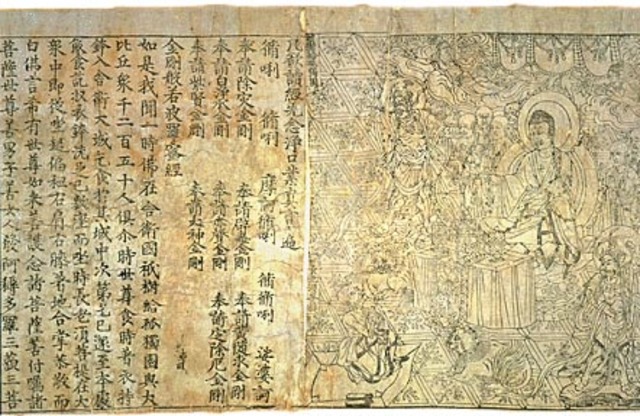 凡欲讀經先念淨口業真言遍
脩唎 脩唎 摩訶脩唎 脩脩唎 娑婆訶
奉請除灾金剛 奉請辟毒金剛 奉請黃隨求金剛
奉請白淨水金剛 奉請赤聲金剛 奉請定除厄金剛
奉請紫賢金剛 奉請大神金剛
金剛般若波羅蜜經
如是我聞一時佛在舍衛國祇樹給孤獨園與大
比丘衆千二百五十人俱尒時世尊食時著衣持
鉢入舍衛大城乞食於其城中次第乞已還至本處
飯食訖收衣鉢洗足已敷座而坐時長老須菩提在大
衆中即從座起偏袒右肩右膝著地合掌恭敬而
白佛言希有世尊如來善護念諸菩薩善付囑諸
菩薩世尊善男子善女人發阿耨多羅三藐三菩